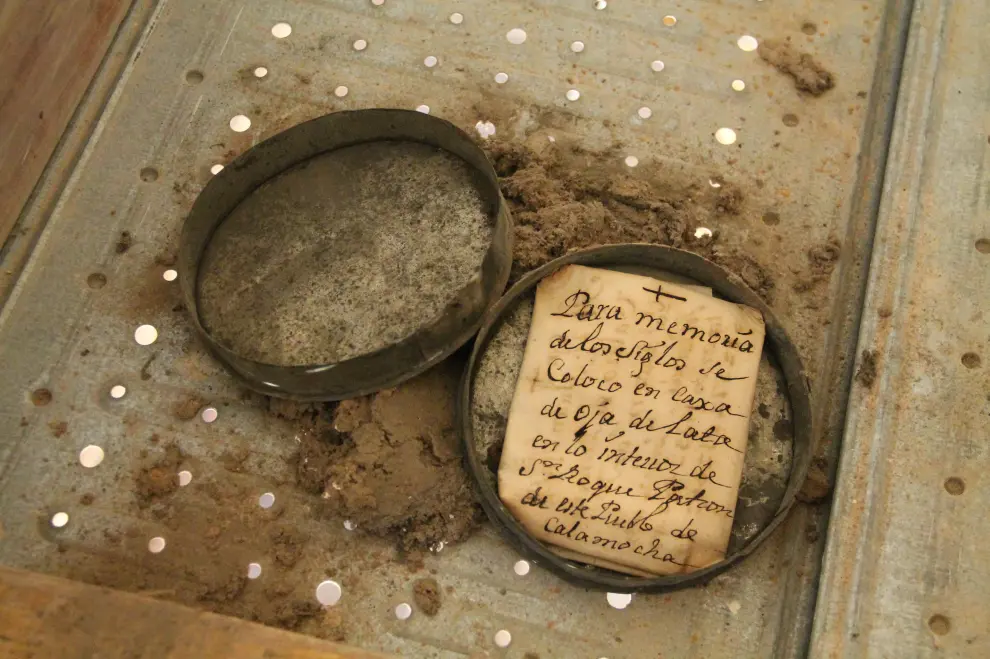 +
Para memoria
de los Siglos se
Coloco en caxa
de Oja de Lata
en lo interior de
Sn Roque Patron
de este Pueblo de
Calamocha